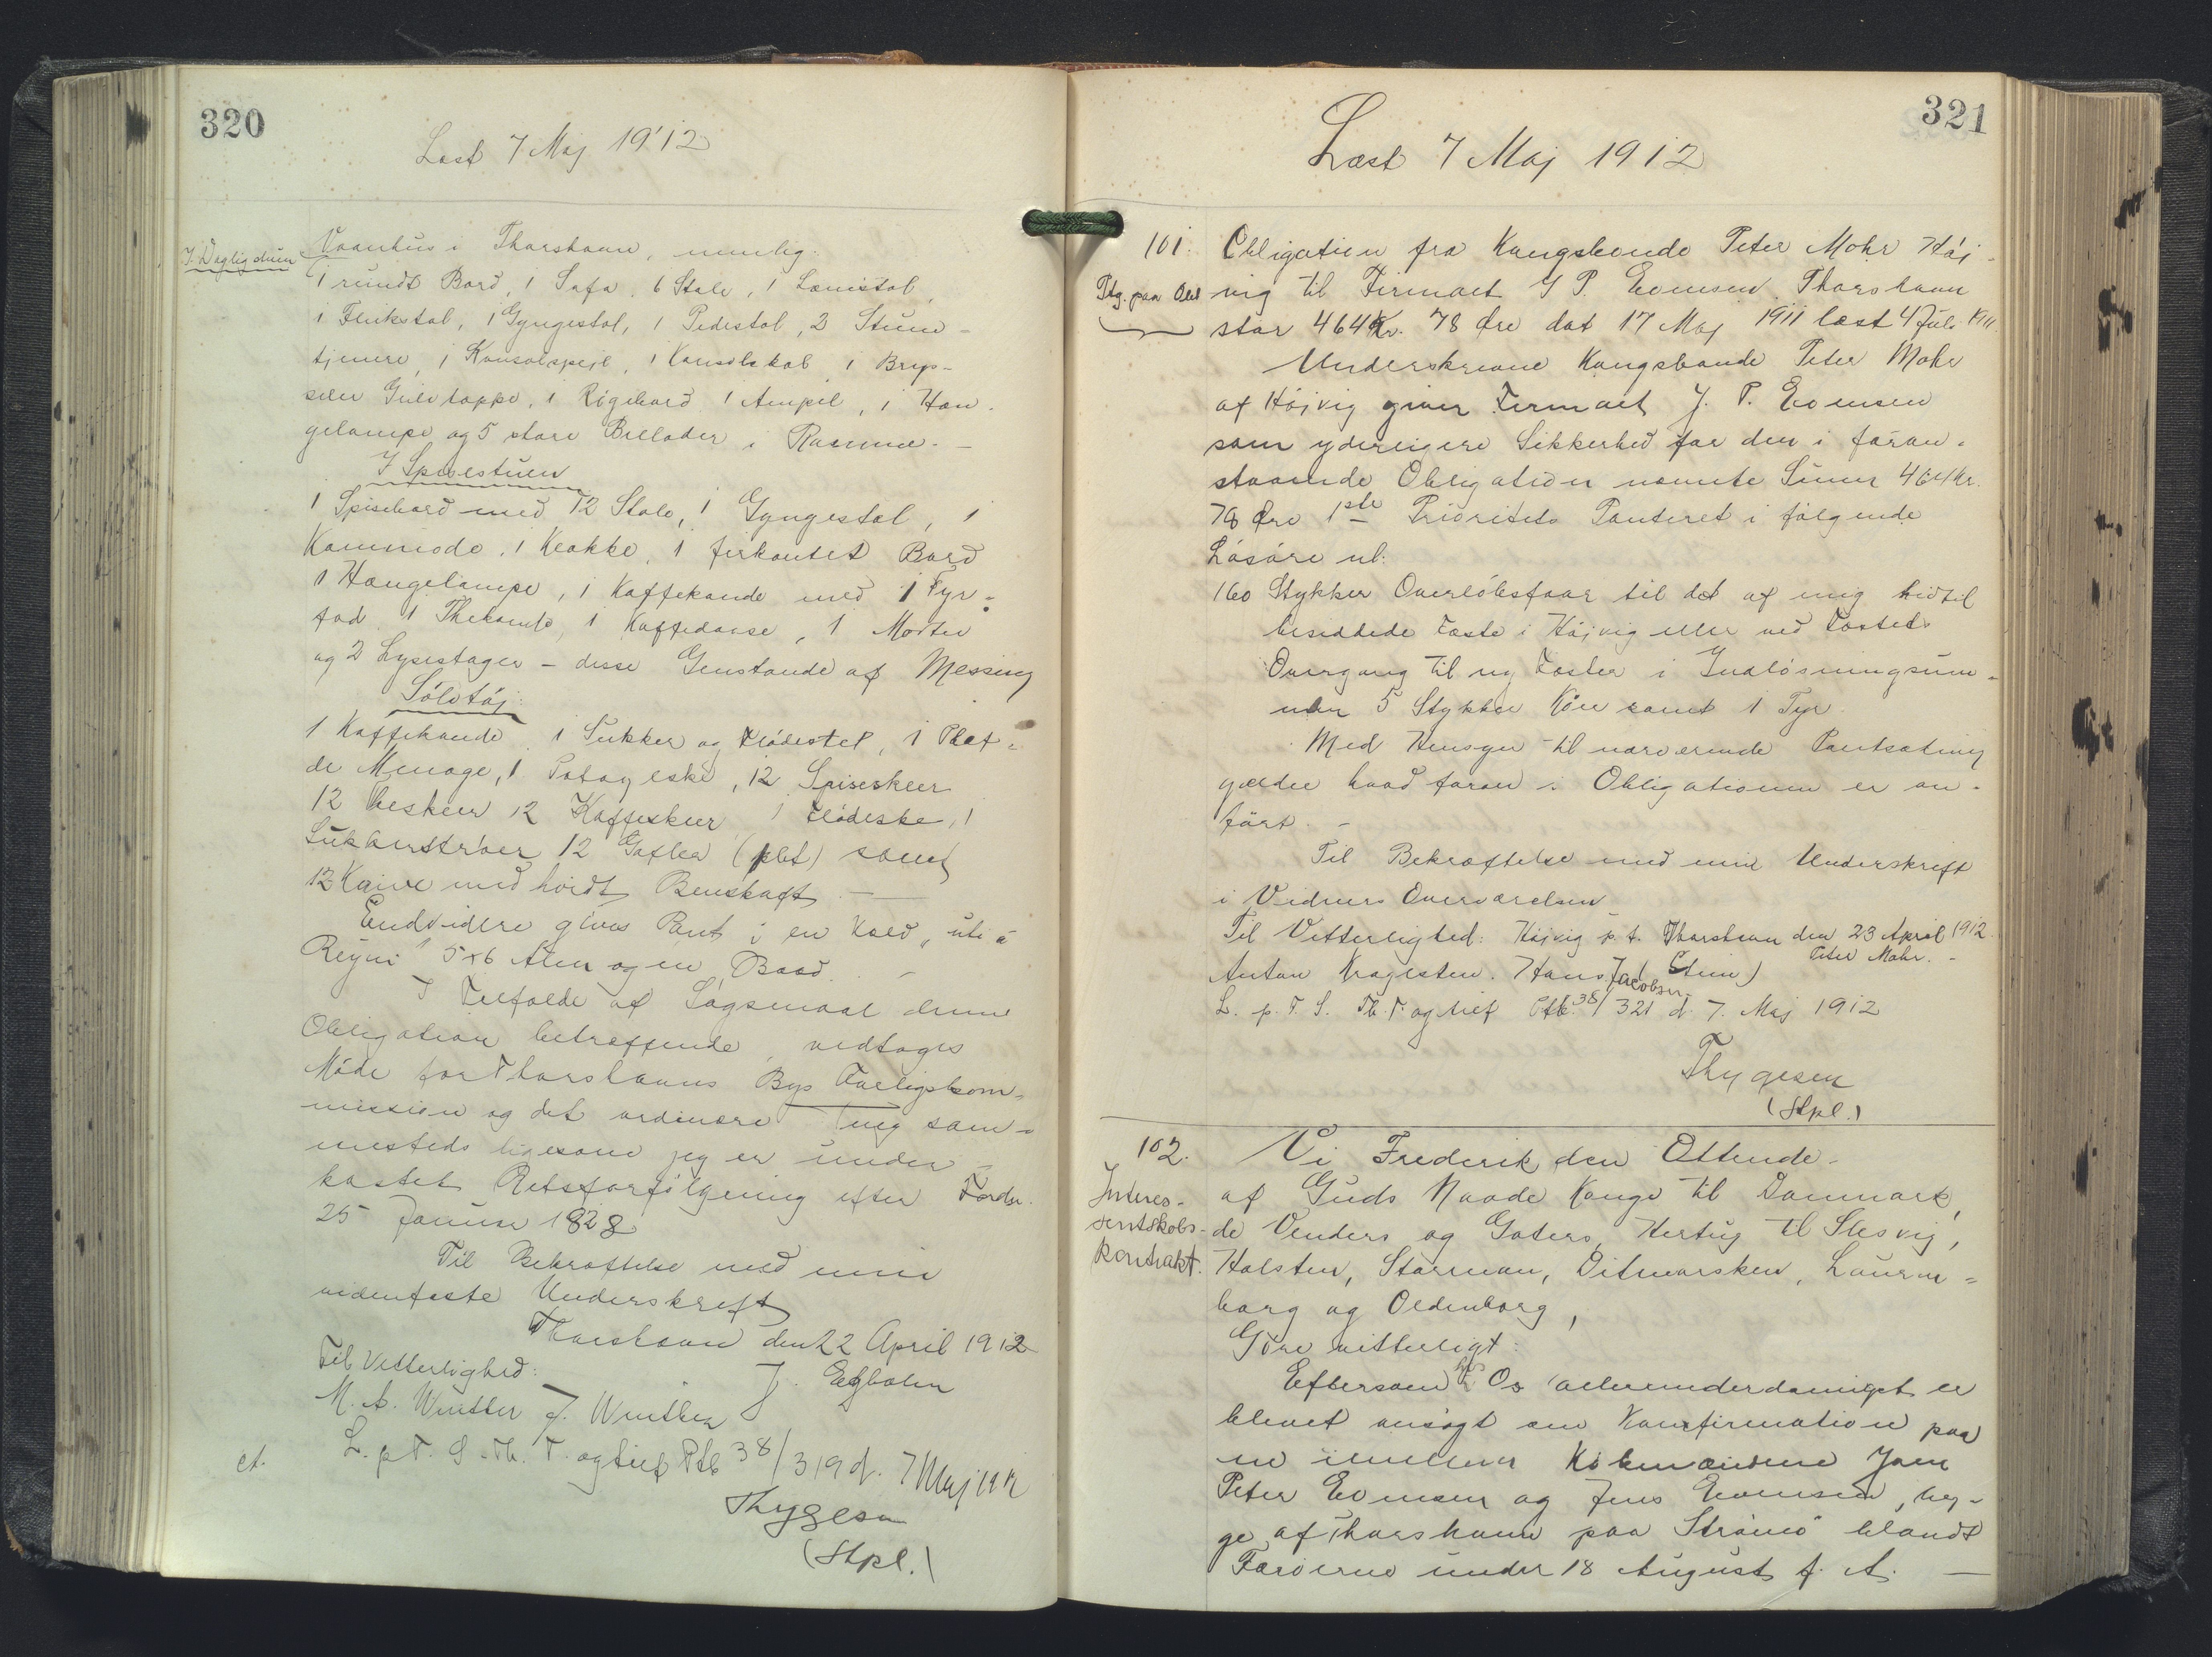 320
Læst 7 Maj 1912
I Dagligstuen
Vaanhus i Thorshavn, nemlig:
1 rundt Bord, 1 Sofa, 6 Stole, 1 Lænestol,
1 Gyngestol, 1 Pedestal, 2 Stum-
tjenere, 1 Konsolspejl, 1 Konsolskab, 1 Brys-
seler Gulvtæppe, 1 Rygebord, 1 Ampel, 1 Hæn-
gelampe og 5 store Billeder i Ramme. –
I Spisestuen
1 Spisebord med 12 Stole, 1 Gyngestol, 1
Kommode, 1 Klokke, 1 firkantet Bord
1 Hængelampe, 1 Kaffekande med 1 Fyr-
fad, 1 Thekande, 1 Kaffedaase, 1 Morter
og 2 Lysestager – disse Genstande af Messing
Sölvtöj:
1 Kaffekande, 1 Sukker og Flödestel, 1 Plat-
de Menage, 1 Potageske, 12 Spiseskeer
12 Theskeer 12 Kaffeskeer 1 Flödeske, 1
Sukkerströer 12 Gafler (plet) samt
12 Knive med hvidt Benskaft —
Endvidere gives Pant i en Kælder, ute á
Reyni 5x6 Alen og en Baad. –
I Tilfælde af Sögsmaal denne
Obligation betræffende, vedtages
Möde for Thorshavns Bys Forligskom-
mission og det ordinære Ting sam-
mesteds ligesom jeg er under-
kastet Retsforfölgning efter Fordn.
25 Januar 1828
Til Bekræftelse med min
vidnefaste Underskrift
Thorshavn den 22 April 1912
Til Vitterlighed:
J. Egholm
M. A. Winther J. Winther
L. p. F. S. Th. T. og tilf Ptb 38/319 d. 7 Maj 1912
ct.
Thygesen
(Stpl.)
321
Læst 7 Maj 1912
101. Obligation fra Kongsbonde Peter Mohr Höj-
Ptg. paa Obl vig til Firmaet J P. Evensen Thorshavn
stor 464 Kr. 78 Öre dat 17 Maj 1911 læst 4 Juli 1911.
Underskrevne Kongsbonde Peter Mohr
af Höjvig giver Firmaet J. P. Evensen
som yderligere Sikkerhed for den i foran-
staaende Obligation nævnte Sum 464 Kr.
78 Öre 1ste Prioritets Panteret i fölgende
Lösöre nl:
160 Stykker Overlöbsfaar til det af mig hidtil
besiddede Fæste i Höjvig eller ved Fæstets
Overgang til ny Fæster i Indlösningssum-
men 5 Stykker Köer samt 1 Tyr.
Med Hensyn til nærværende Pantsætning
gælder hvad foran i Obligationen er an-
fört. –
Til Bekræftelse med min Underskrift
i Vidners Overværelse
Til Vitterlighed: Höjvig p. t. Thorshavn den 23 April 1912.
Peter Mohr. –
Anton Kragesteen. Hans Jacobsen
L. p. F. S. Th. T. og tilf Ptb. 38/321 d. 7. Maj 1912
Thygesen
(Stpl.)
102. Vi Frederik den Ottende-
Interes-
sentskabs-
kontrakt.
af Guds Naade Konge til Danmark,
de Venders og Goters, Hertug til Slesvig,
Holsten, Stormarn, Ditmarsken, Lauen-
borg og Oldenborg,
Göre vitterligt:
Eftersom hos Os allerunderdanigst er
blevet ansögt om Konfirmation paa
en imellem Köbmændene Joen
Peter Evensen og Jens Evensen, beg-
ge af Thorshavn paa Strömö blandt
Færöerne under 18 August f. A. —